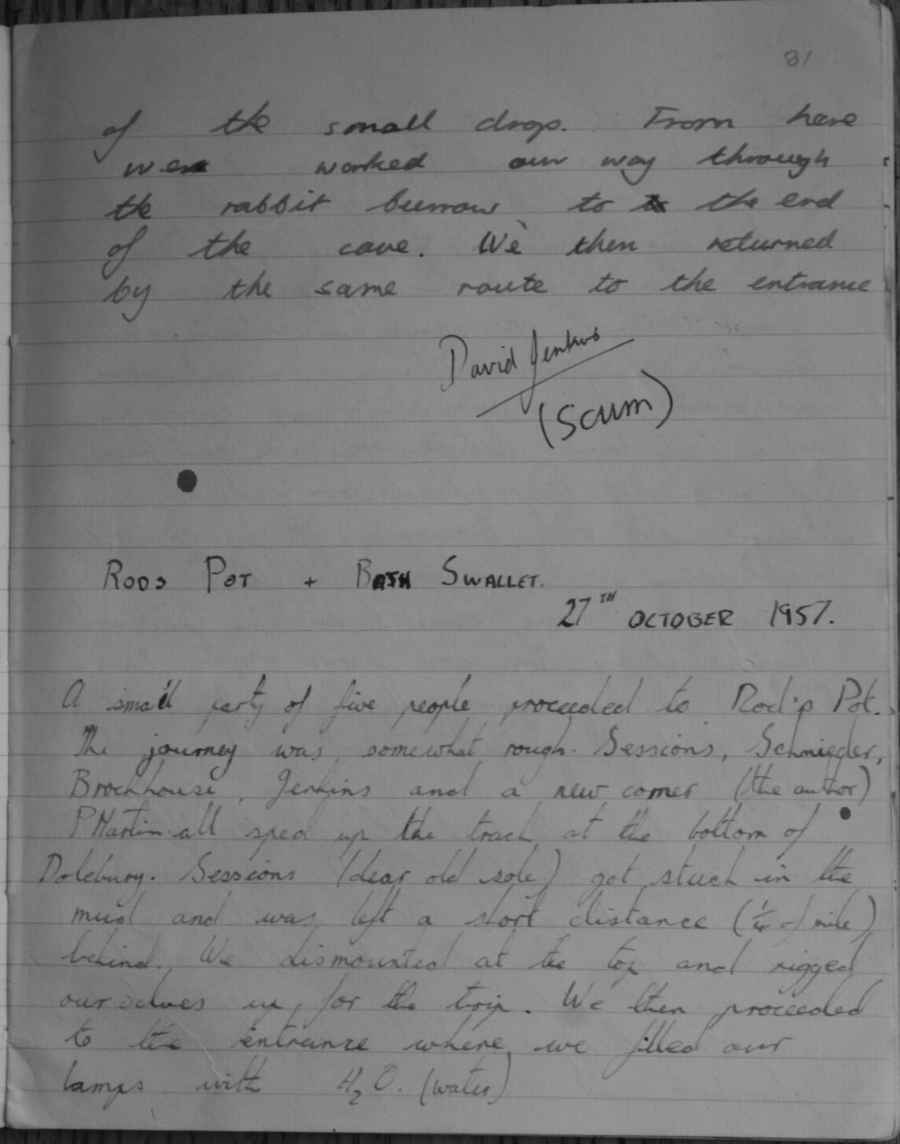 81
of the small drop. From here
we worked our way through
the rabbit burrow to the end
of the cave. We then returned
by the same route to the entrance
David Jenkins
(Scum)
RODS POT + BATH SWALLET.
27TH OCTOBER 1957.
A small party of five people proceeded to Rod's Pot.
The journey was somewhat rough. Sessions, Schmieder,
Brockhouse, Jenkins and a new comer (the author)
P Martin all sped up the track at the bottom of
Dolebury. Sessions (dear old sole) got stuck in the
mud and was left a short distance (¼ of mile)
behind. We dismounted at the top and rigged
ourselves up for the trip. We then proceeded
to the entrance where we filled our
lamps with H2O. (water)